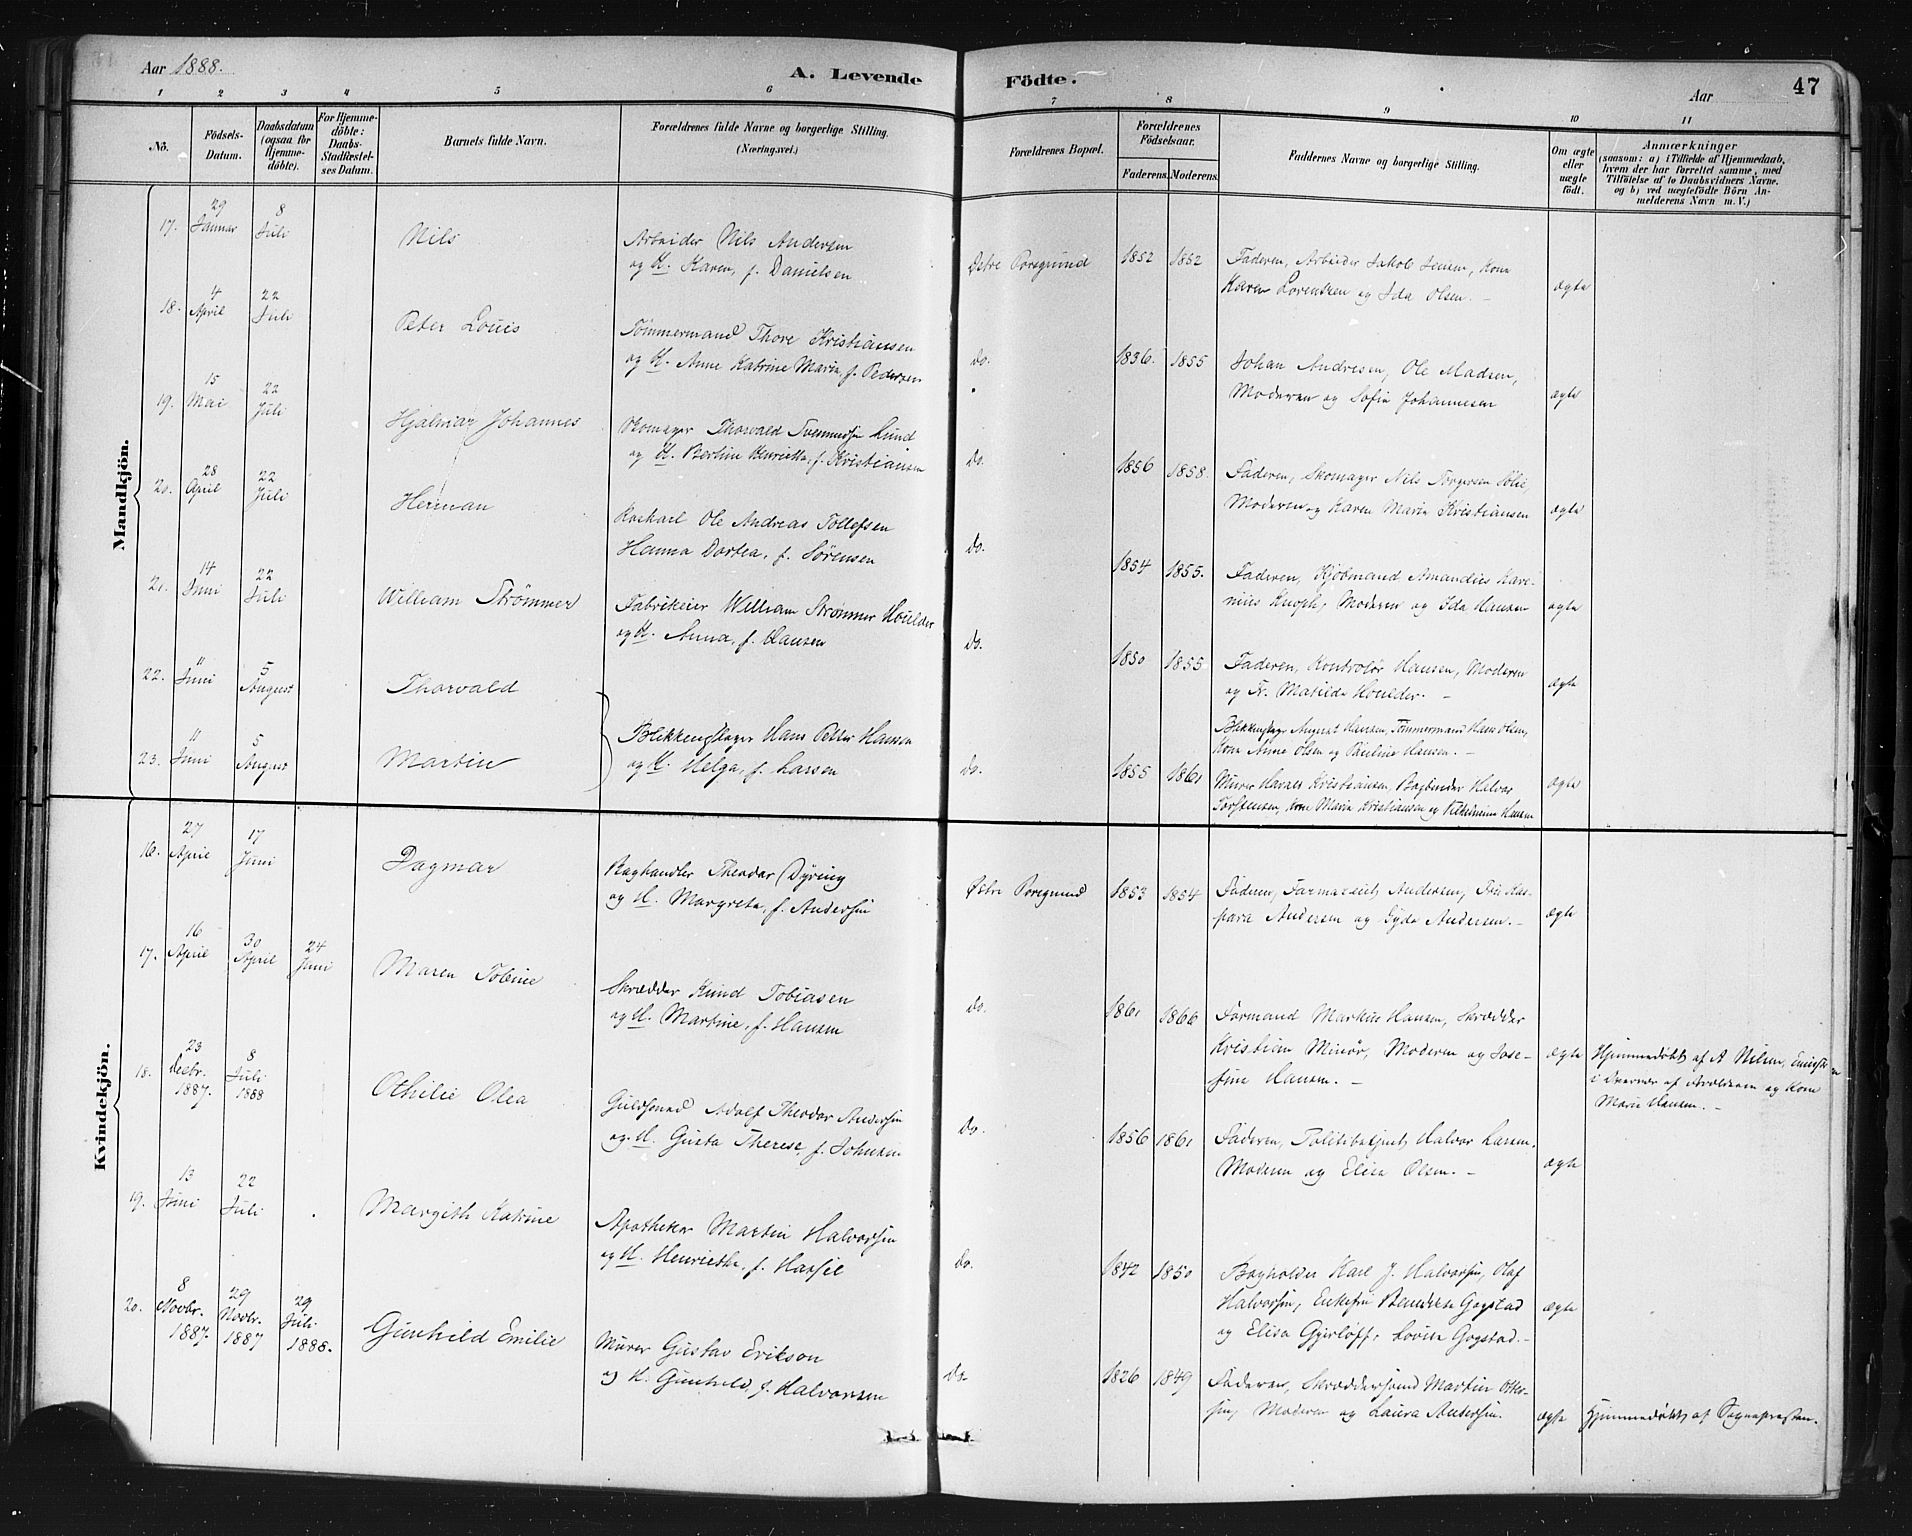 Aar 1888.
A. Levende Födte.
Aar
47
1 2 3 4 5 6 7 8 9 10 11
Nö.
Födsels-Datum.
Daabsdatum (ogsaa for Hjemme-döbte).
For Hjemme-döbte: Daabs-Stadfæstel-ses Datum.
Barnets fulde Navn.
Forældrenes fulde Navne og borgerlige Stilling. (Næringsvei.)
Forældrenes Bopæl.
Forældrenes Födselsaar.
Faderens. Moderens.
Faddernes Navne og borgerlige Stilling.
Om ægte eller uægte födt.
Anmærkninger
(saasom: a) i Tilfælde af Hjemmedaab,
hvem der har forrettet samme, med
Tilföielse af to Daabsvidners Navne,
og b) ved uægtefödte Börn An-
melderens Navn m. V.)
Mandkjön.
17. 29 Januar 8 Juli Nils
Arbeider Nils Andersen
og H. Karen, f. Danielsen
Østre Porsgrund 1852 1852
Faderen, Arbeider Jakob Jensen, Kone
Karen Lorentsen og Ida Olsen. –
ægte
18. 4 April 22 Juli Peter Louis
Tömmermand Thore Kristiansen
og H. Anne Katrine Marie, f. Pedersen
do. 1836. 1855
Johan Andresen, Ole Madsen,
Moderen og Sofie Johannesen
ægte
19. 15 Mai 22 Juli Hjalmar Johannes
Skomager Thorvald Svennudsen Lund
og H. Bertine Henriette, f. Kristiansen
do. 1856 1858.
Faderen, Skomager Nils Torgersen Solie,
Moderen og Karen Marie Kristiansen
ægte
20. 28 April 22 Juli Herman
Ole Andreas Tollefsen
Hanna Dortea, f. Sørensen
do. 1854 1855.
Faderen, Kjöbmand Amandus Kare-
nius Knoph, Moderen og Ida Hansen
ægte
21. 14 Juni 22 Juli William Strømmer
Fabrikeier William Strømmer Houlder
og H. Anna, f. Hansen
do. 1850 1855.
Faderen, Kontrolör Hansen, Moderen
og Fr. Matilde Houlder. –
ægte
22. 11 Juni 5 August Thorvald
23. 11 Juni 5 August Martin
Blikkenslager Hans Petter Hansen
og H. Helga, f. Larsen
do. 1855 1861
Blikkenslager August Hansen, Tömmermand Hans Olsen,
Kone Anne Olsen og Pauline Hansen. –
Murer Harald Kristiansen, Bogbinder Halvor
Torstensen, Kone Marie Kristiansen og Vilhelmine Hansen
ægte
Kvindekjön.
16. 27 April 17 Juni Dagmar
Theodor Dyring
og H. Margrete, f. Andersen
Østre Porsgrund 1853 1854
Faderen, Farmaceut Andersen, Frk Kas-
para Andersen og Gyda Andersen. –
ægte
17. 16 April 30 April 24 Juni Maren Tobine
Skrædder Knud Tobiasen
og H. Martine, f. Hansen
do. 1861 1866
Formand Markus Hansen, Skrædder
Kristian Minör, Moderen og Jose-
fine Hansen. –
ægte
Hjemmedøbt af A Nilsen,
i Overvær af Forældrene og Kone
Marie Hansen. –
18. 23 Decbr. 1887. 8 Juli 1888 Othilie Olea
Guldsmed Adolf Theodor Andersen
og H. Gusta Therese, f. Johnsen
do. 1856 1861
Faderen, Politibetjent Halvor Larsen.
Moderen og Elise Olsen. –
ægte
19. 13 Juni 22 Juli Margith Katrine
Apotheker Martin Halvorsen
og H. Henriette, f. Hassel
do. 1842 1850
Bogholder Karl J. Halvorsen, Olaf
Halvorsen, Enkefru Benedikte Gogstad
og Elisa Gjerløff, Lovise Gogstad. –
ægte
20. 8 Novbr. 1887. 29 Novbr. 1887 29 Juli 1888. Gunhild Emilie
Murer Gustav Erikson
og H. Gunhild, f. Halvorsen
do. 1826 1849
Faderen, Skræddersvend Martin Otter-
sen, Moderen og Laura Andersen.
ægte
Hjemmedøbt af Sognepresten.